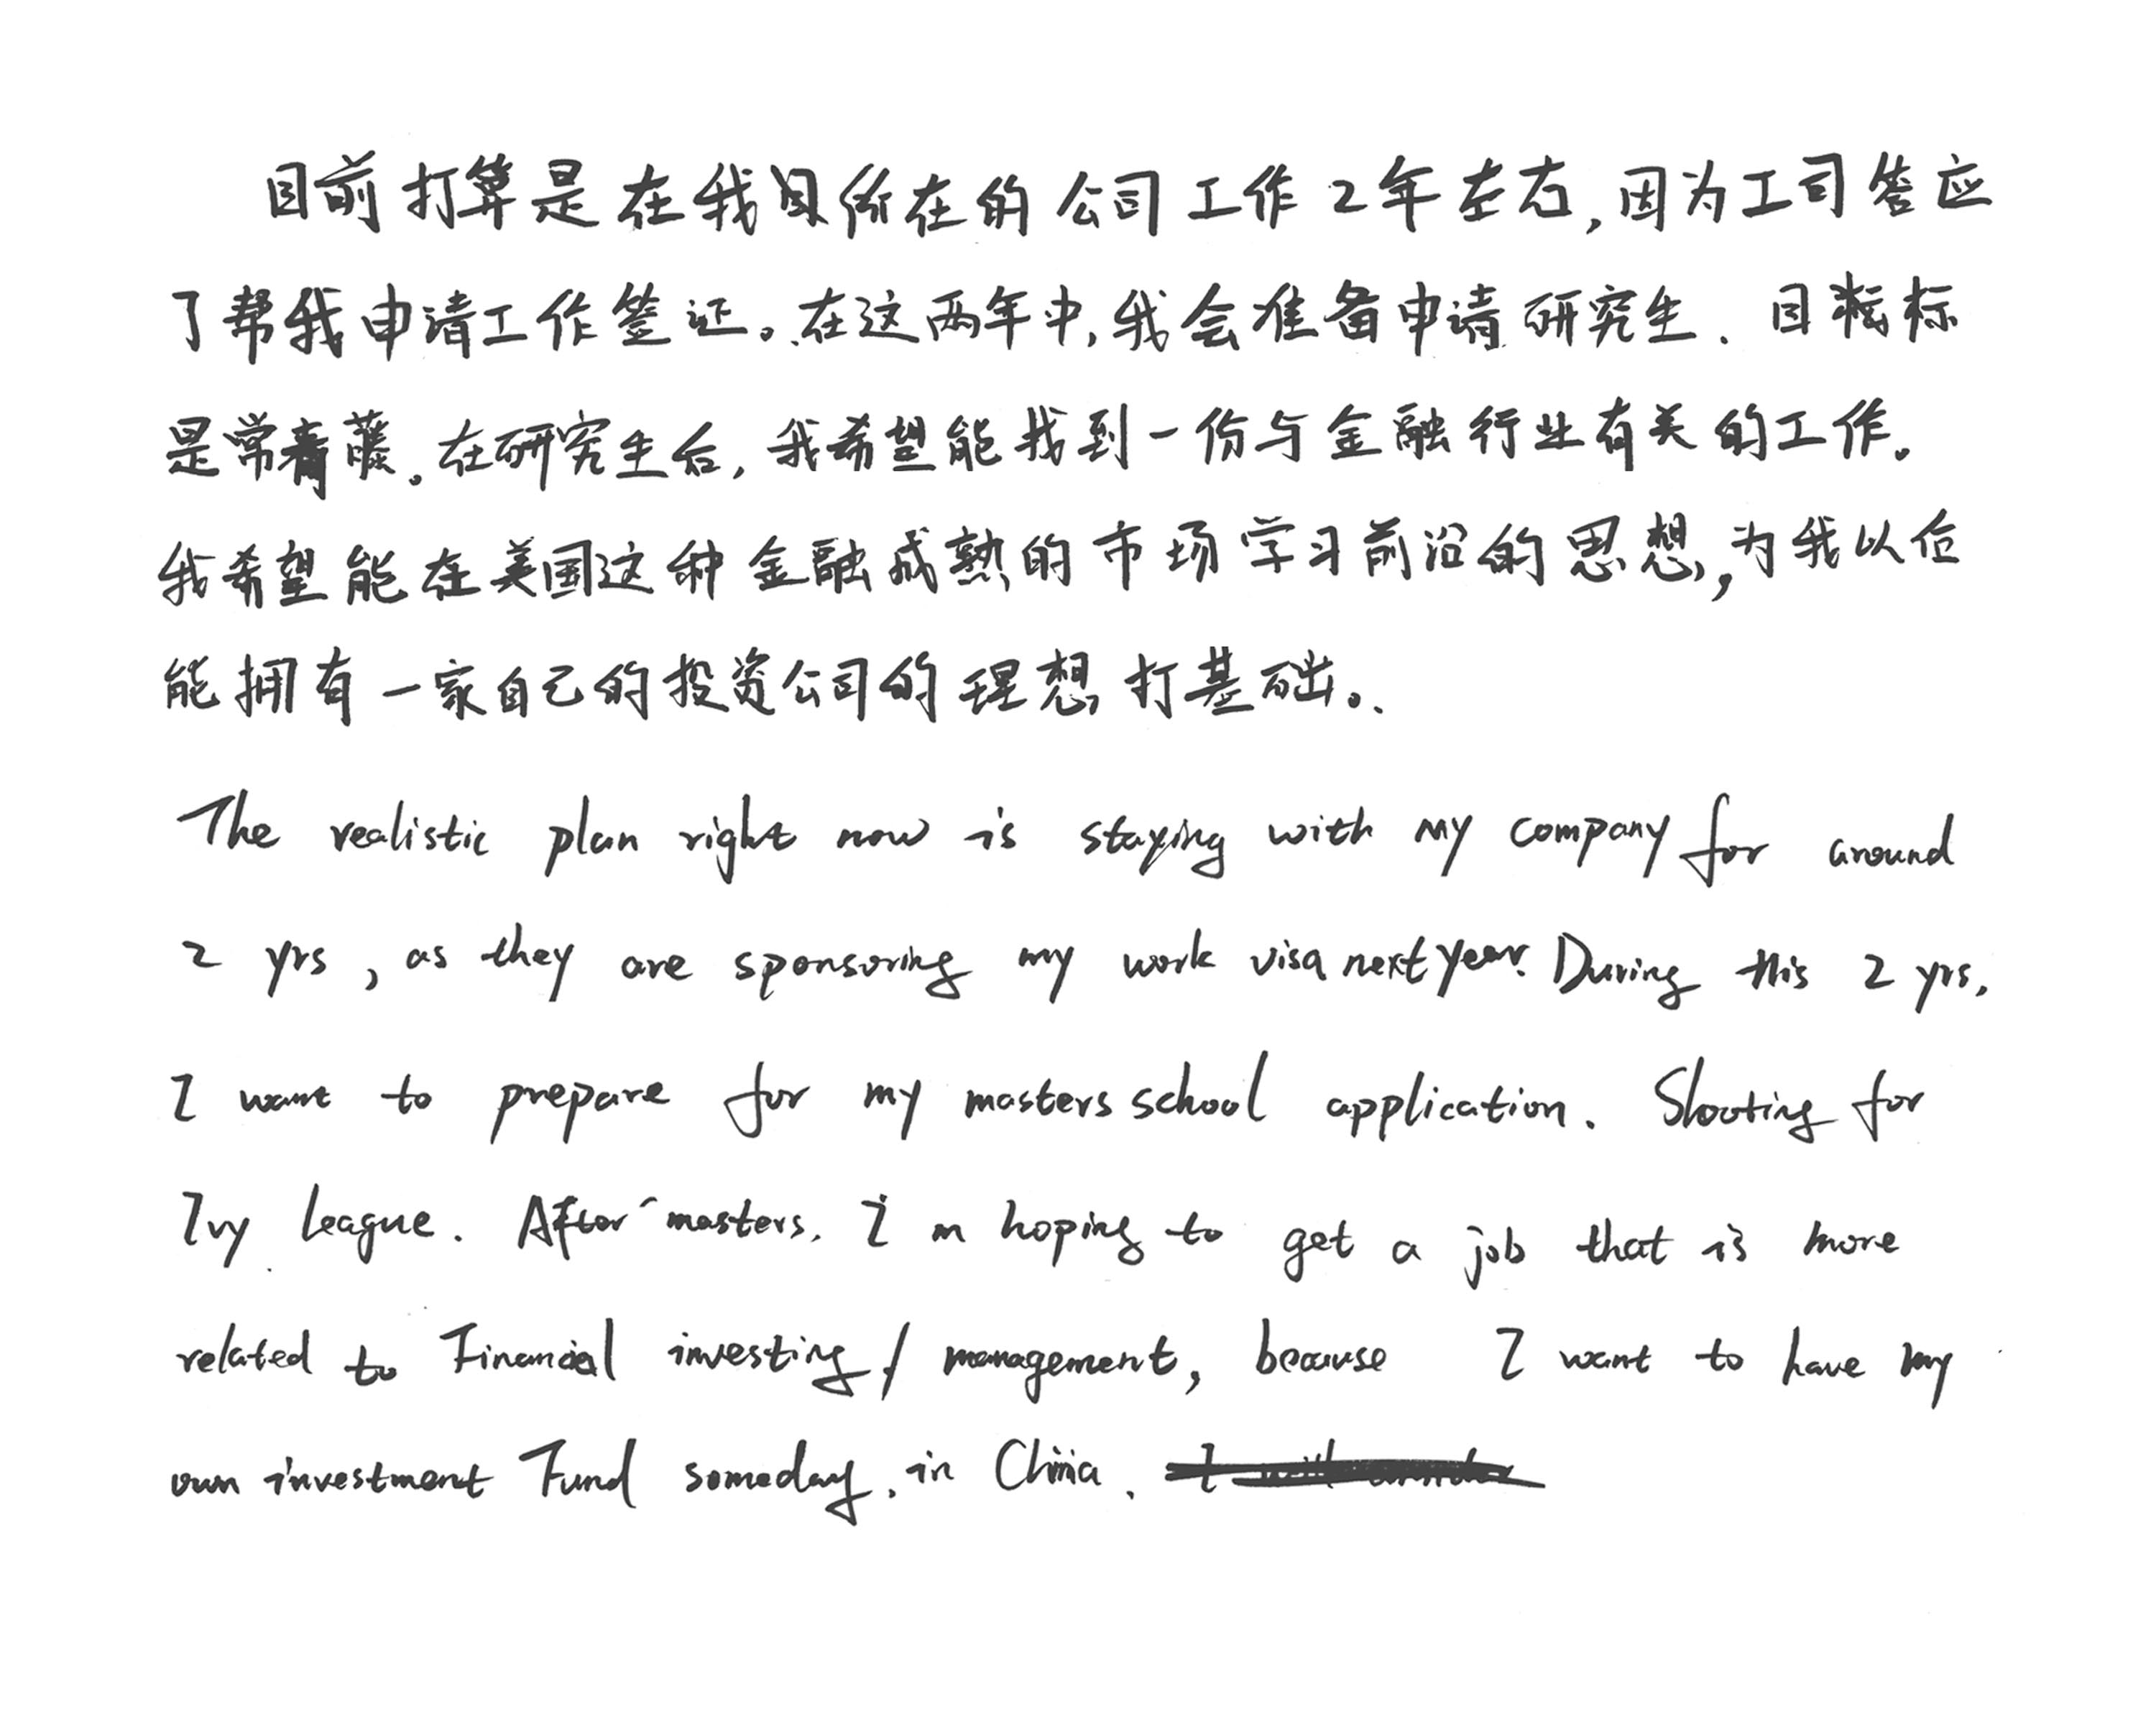 目前打算是在我目所在的公司工作2年左右,因为工司答应
了帮我申请工作签证。在这两年中,我会准备申请研究生.目标
是常青藤。在研究生后,我希望能找到一份与金融行业有关的工作。
我希望能在美国这种金融成熟的市场学习前沿的思想,为我以位
能拥有一家自己的投资公司的理想打基础。
The realistic plan right now is staying with my company for around
2 yrs, as they are sponsoring my work visa next year. During this 2 yrs,
I want to prepare for my masters school application. Shooting for
Ivy League. After masters, I'm hoping to get a job that is more
related to Financial investing/management, because I want to have my
own investment Fund someday, in China.